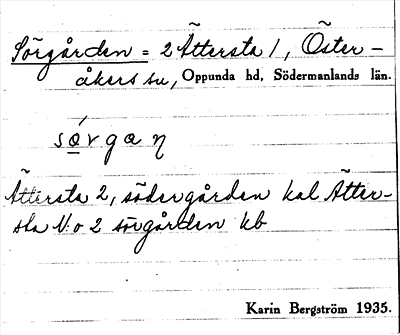 Sörgården = 2 Ättersta 1, Öster-
åkers sn, Oppunda hd, Södermanlands län.
sǿrgaŋ
Ättersta 2, södergården kal Ätter-
sta N:o 2 sörgården kb
Karin Bergström 1935.